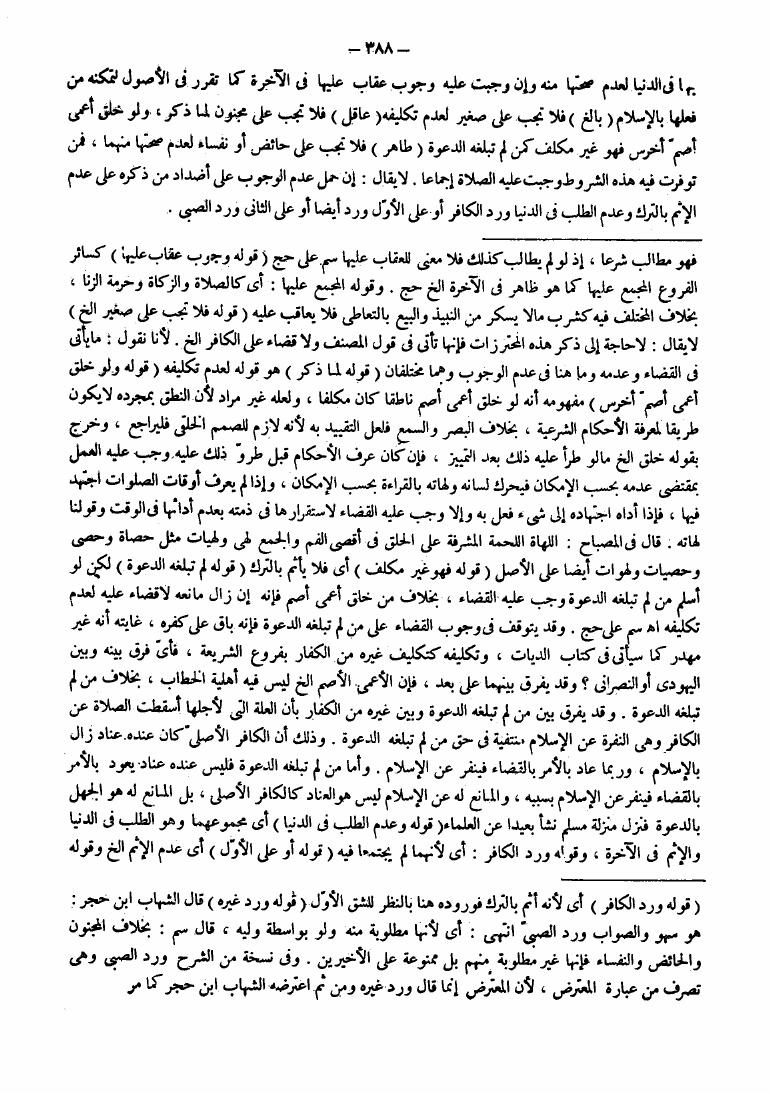 — ٣٨٨ —
بها فى الدنيا لعدم صحتها منه وإن وجبت عليه وجوب عقاب عليها فى الآخرة كما تقرر فى الأصول لتمكنه من
فعلها بالإسلام ( بالغ ) فلا تجب على صغير لعدم تكليفه ( عاقل ) فلا تجب على مجنون لما ذكر ، ولو خلق أعمى
أصمّ أخرس فهو غير مكلف كمن لم تبلغه الدعوة ( طاهر ) فلا تجب على حائض أو نفساء لعدم صحتها منهما ، فمن
توفرت فيه هذه الشروط وجبت عليه الصلاة إجماعا . لايقال : إن حمل عدم الوجوب على أضداد من ذكره على عدم
الإثم بالترك وعدم الطلب فى الدنيا ورد الكافر أو على الأوّل ورد أيضا أو على الثانى ورد الصبي .
فهو مطالب شرعا ، إذ لو لم يطالب كذلك فلا معنى للعقاب عليها سم على حج ( قوله وجوب عقاب عليها ) كسائر
الفروع المجمع عليها كما هو ظاهر فى الآخرة الخ حج . وقوله المجمع عليها : أى كالصلاة والزكاة وحرمة الزنا ،
بخلاف المختلف فيه كشرب مالا يسكر من النبيذ والبيع بالتعاطى فلا يعاقب عليه ( قوله فلا تجب على صغير الخ )
لايقال : لاحاجة إلى ذكر هذه المحترزات فإنها تأتى فى قول المصنف ولا قضاء على الكافر الخ . لأنا نقول : مايأتى
فى القضاء وعدمه وما هنا فى عدم الوجوب وهما مختلفان ( قوله لما ذكر ) هو قوله لعدم تكليفه ( قوله ولو خلق
أعمى أصمّ أخرس ) مفهومه أنه لو خلق أعمى أصم ناطقا كان مكلفا ، ولعله غير مراد لأن النطق بمجرده لايكون
طريقا لمعرفة الأحكام الشرعية ، بخلاف البصر والسمع فلعل التقييد به لأنه لازم للصمم الخلقى فليراجع ، وخرج
بقوله خلق الخ مالو طرأ عليه ذلك بعد التمييز ، فإن كان عرف الأحكام قبل طروّ ذلك عليه وجب عليه العمل
بمقتضى علمه بحسب الإمكان فيحرك لسانه ولهاته بالقراءة بحسب الإمكان ، وإذا لم يعرف أوقات الصلوات اجتهد
فيها ، فإذا أداه اجتهاده إلى شىء فعل به وإلا وجب عليه القضاء لاستقرارها فى ذمته بعدم أدائها فى الوقت وقولنا
لهاته . قال فى المصباح : اللهاة اللحمة المشرفة على الحلق فى أقصى الفم والجمع لهى ولهيات مثل حصاة وحصى
وحصيات ولهوات أيضا على الأصل ( قوله فهو غير مكلف ) أى فلا يأثم بالترك ( قوله لم تبلغه الدعوة ) لكن لو
أسلم من لم تبلغه الدعوة وجب عليه القضاء ، بخلاف من خلق أعمى أصم فإنه إن زال مانعه لاقضاء عليه لعدم
تكليفه اهـ سم على حج . وقد يتوقف فى وجوب القضاء على من لم تبلغه الدعوة فإنه باق على كفره ، غايته أنه غير
مهدر كما سيأتى فى كتاب الديات ، وتكليفه كتكليف غيره من الكفار بفروع الشريعة ، فأىّ فرق بينه وبين
اليهودى أو النصرانى ؟ وقد يفرق بينهما على بعد ، فإن الأعمى الأصم الخ ليس فيه أهلية الخطاب ، بخلاف من لم
تبلغه الدعوة . وقد يفرق بين من لم تبلغه الدعوة وبين غيره من الكفار بأن العلة التى لأجلها أسقطت الصلاة عن
الكافر وهى النفرة عن الإسلام منتفية فى حق من لم تبلغه الدعوة . وذلك أن الكافر الأصلىّ كان عنده عناد زال
بالإسلام ، وربما عاد بالأمر بالقضاء فينفر عن الإسلام . وأما من لم تبلغه الدعوة فليس عنده عناد يعود بالأمر
بالقضاء فينفر عن الإسلام بسببه ، والمانع له عن الإسلام ليس هو العناد كالكافر الأصلى ، بل المانع له هو الجهل
بالدعوة فنزل منزلة مسلم نشأ بعيدا عن العلماء ( قوله وعدم الطلب فى الدنيا ) أى مجموعهما وهو الطلب فى الدنيا
والإثم فى الآخرة ، وقوله ورد الكافر : أى لأنهما لم يجتمعا فيه ( قوله أو على الأوّل ) أى عدم الإثم الخ وقوله
( قوله ورد الكافر ) أى لأنه أثم بالترك فوروده هنا بالنظر للشق الأوّل ( قوله ورد غيره ) قال الشهاب ابن حجر :
هو سهو والصواب ورد الصبىّ انتهى : أى لأنها مطلوبة منه ولو بواسطة وليه ، قال سم : بخلاف المجنون
والحائض والنفساء فإنها غير مطلوبة منهم بل ممنوعة على الأخيرين . وفى نسخة من الشرح ورد الصبى وهى
تصرف من عبارة المعترض ، لأن المعترض إنما قال ورد غيره ومن ثم اعترضه الشهاب ابن حجر كما مر